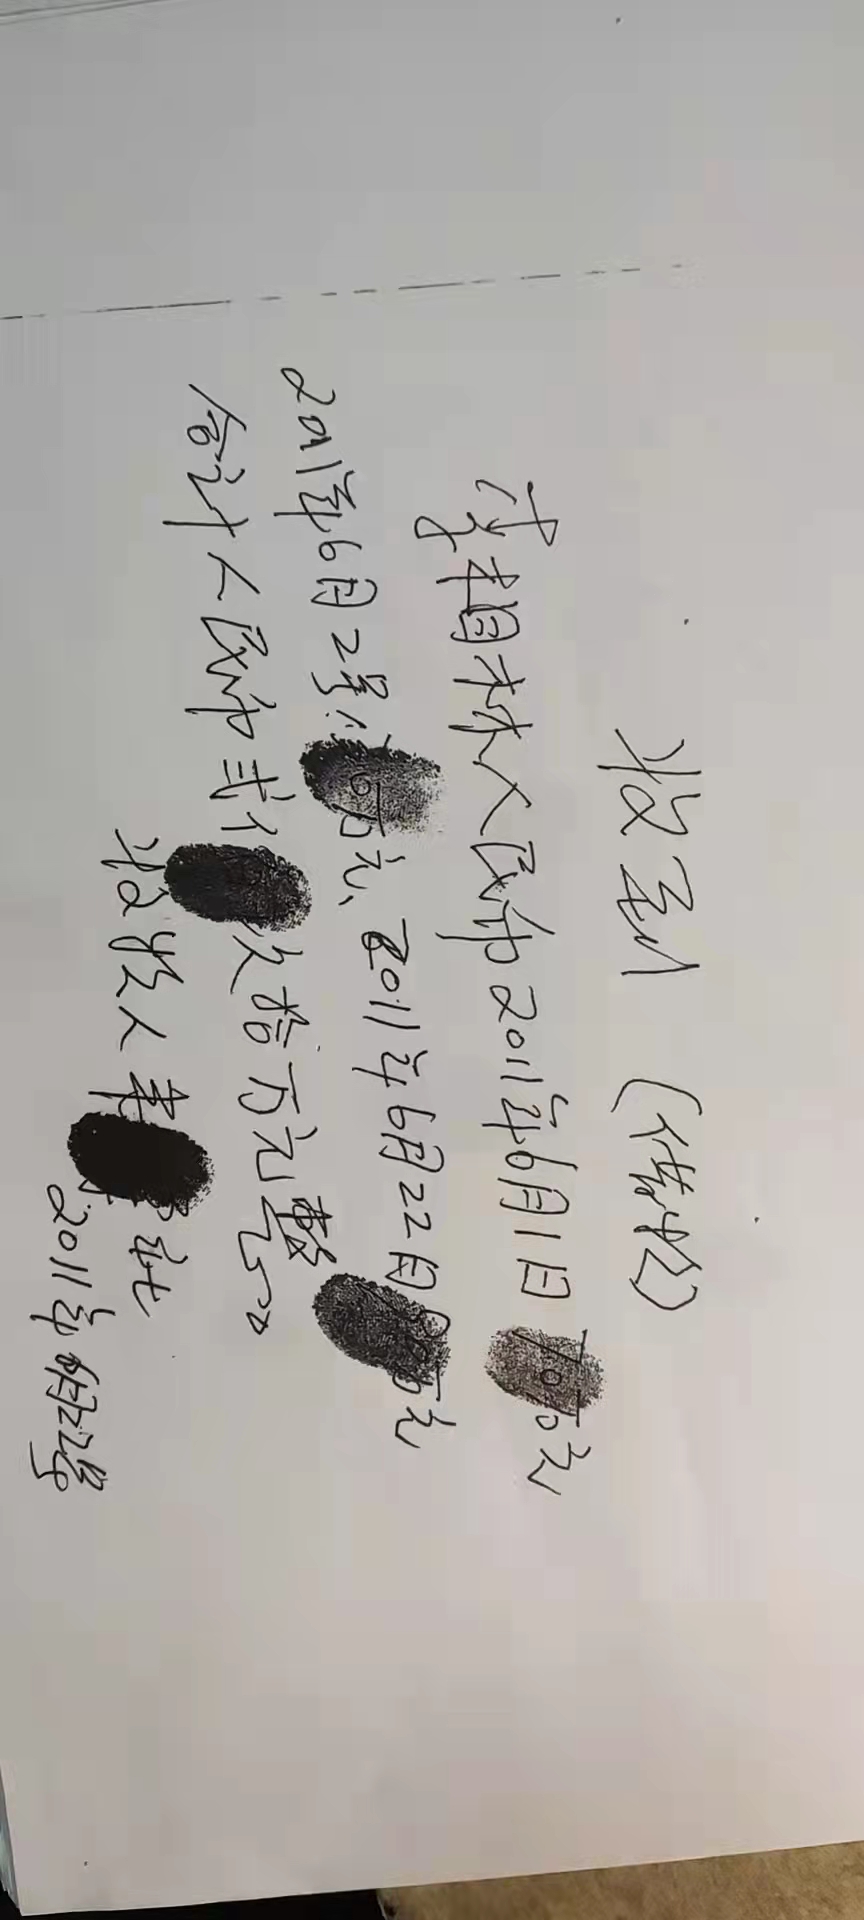 收到（借收）
李相林人民币2011年6月1日70万元
2011年6月2号 万元、2011年6月22日 万元
合计人民币贰 拾万元整
收收人
2011年6月22号